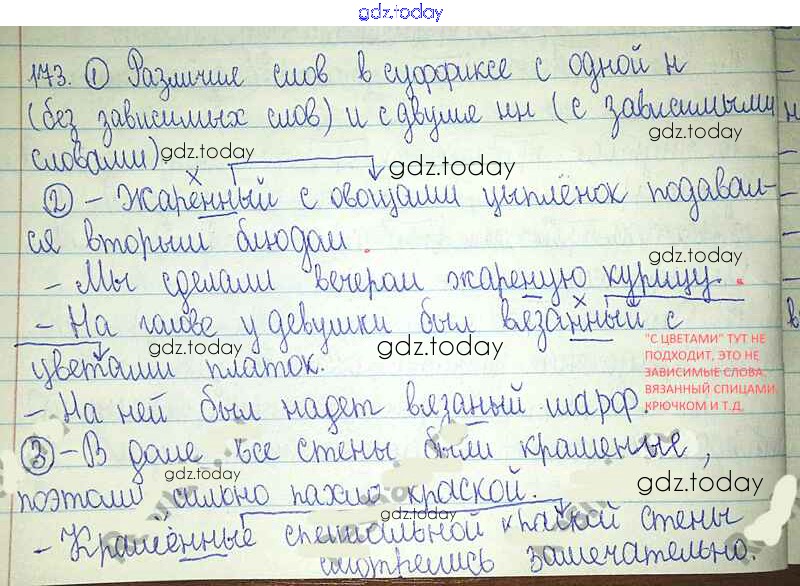 gdz.today
173. ① Различие слов в суффиксе с одной н
(без зависимых слов) и с двумя нн (с зависимыми
словами) gdz.today
gdz.today
gdz.today
② - Жаренный с овощами цыплёнок подавал-
ся вторым блюдом.
gdz.today
- Мы сделали вечером жареную курицу.
- На голове у девушки был вязанный с
цветами платок.
gdz.today
gdz.today
"С ЦВЕТАМИ" ТУТ НЕ
ПОДХОДИТ, ЭТО НЕ
ЗАВИСИМЫЕ СЛОВА.
ВЯЗАННЫЙ СПИЦАМИ,
КРЮЧКОМ И Т.Д.
- На ней был надет вязаный шарф.
③ - В доме все стены были крашеные,
gdz.today
поэтому сильно пахло краской.
gdz.today
- Крашенные специальной краской стены
смотрелись замечательно.